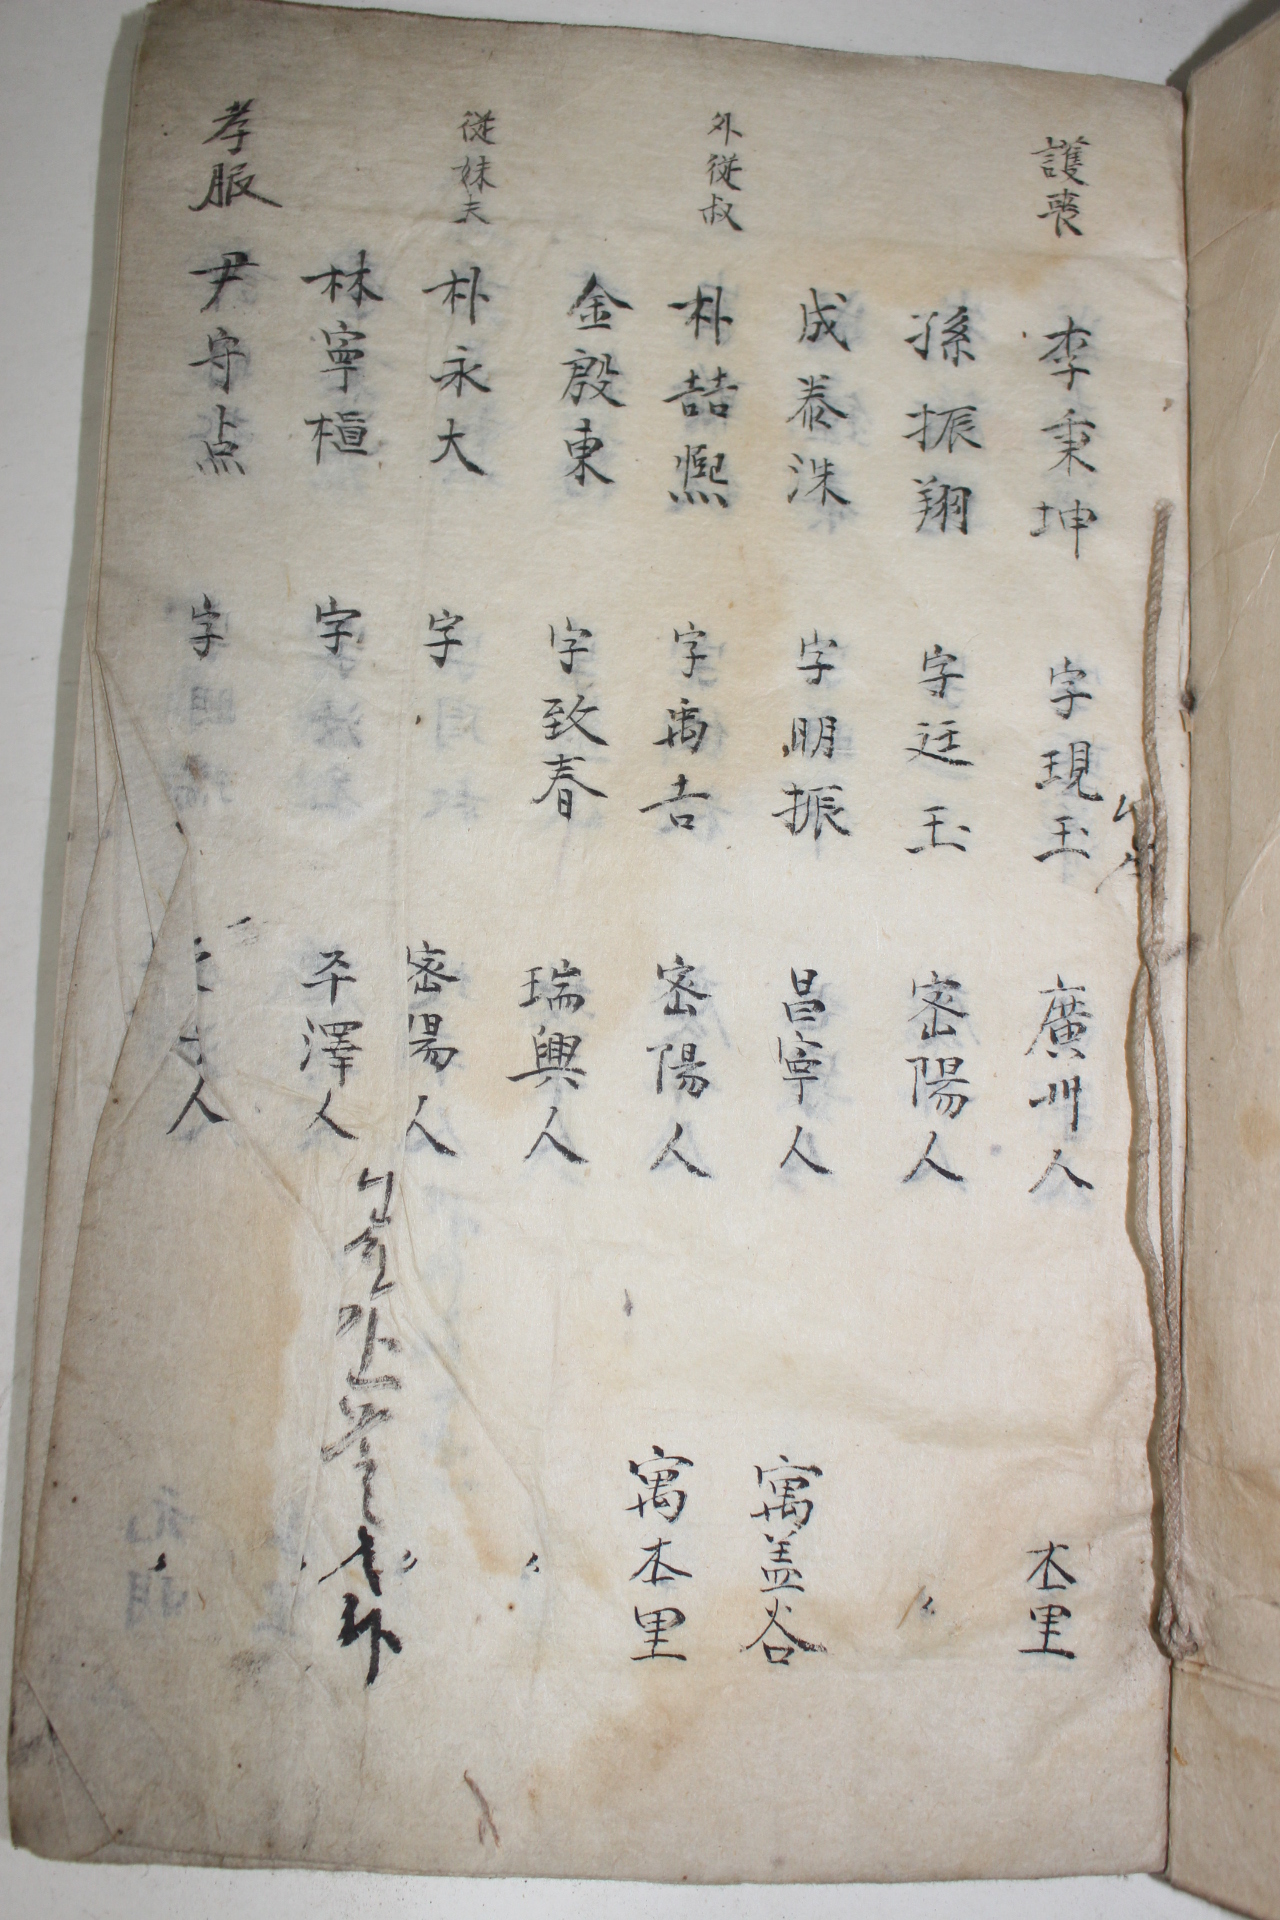 護喪 李秉坤 字現玉 廣州人 本里
孫振翔 字廷玉 密陽人 〻
成泰洙 字明振 昌寧人 寓盖谷
外從叔 朴喆熙 字禹吉 密陽人 寓本里
金殷東 字致春 瑞興人 〻
從妹夫 朴永大 字 密陽人 〻
林寧樌 字 平澤人 〻
孝服 尹守点 字 人 〻